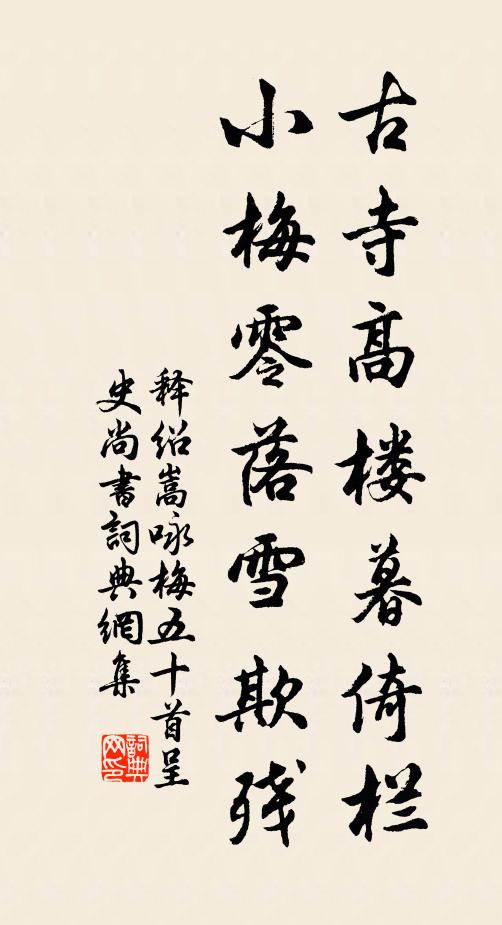 古寺高楼暮倚栏
小梅零落雪欺残
释绍嵩咏梅五十首呈
史尚書詞典網集
詞典
网印